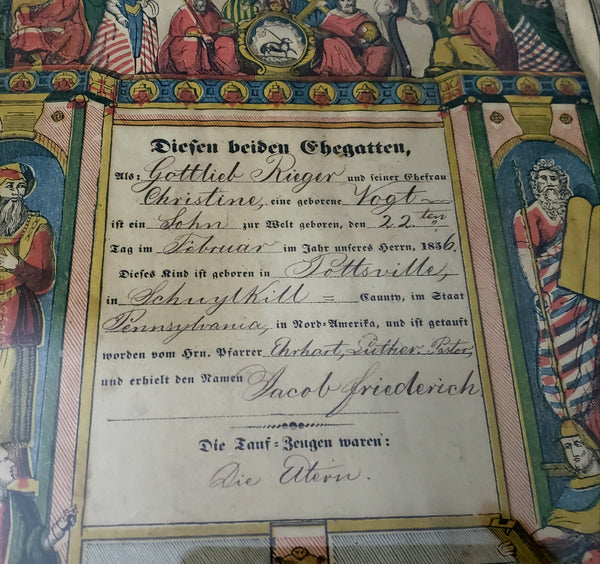 Diesen beiden Ehegatten,
Als: Gottlieb Rieger und seiner Ehefrau
Christine, eine geborene Vogt
ist ein Sohn zur Welt geboren, den 22.ten
Tag im Februar im Jahr unseres Herrn, 1856.
Dieses Kind ist geboren in Pottsville,
in Schuylkill = Caunty, im Staat
Pennsylvania, in Nord-Amerika, und ist getauft
worden vom Hrn. Pfarrer Ehrhart, Luther. Pastor,
und erhielt den Namen Jacob Friederich
Die Tauf-Zeugen waren:
Die Eltern.